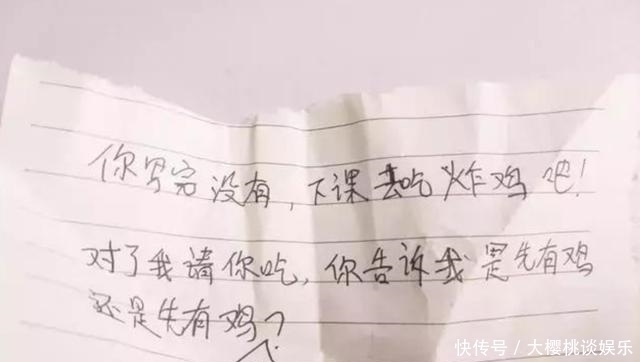 你写完没有，下课去吃炸鸡吧！
对了我请你吃，你告诉我是先有鸡
还是先有鸡？
快传号／大樱桃谈娱乐